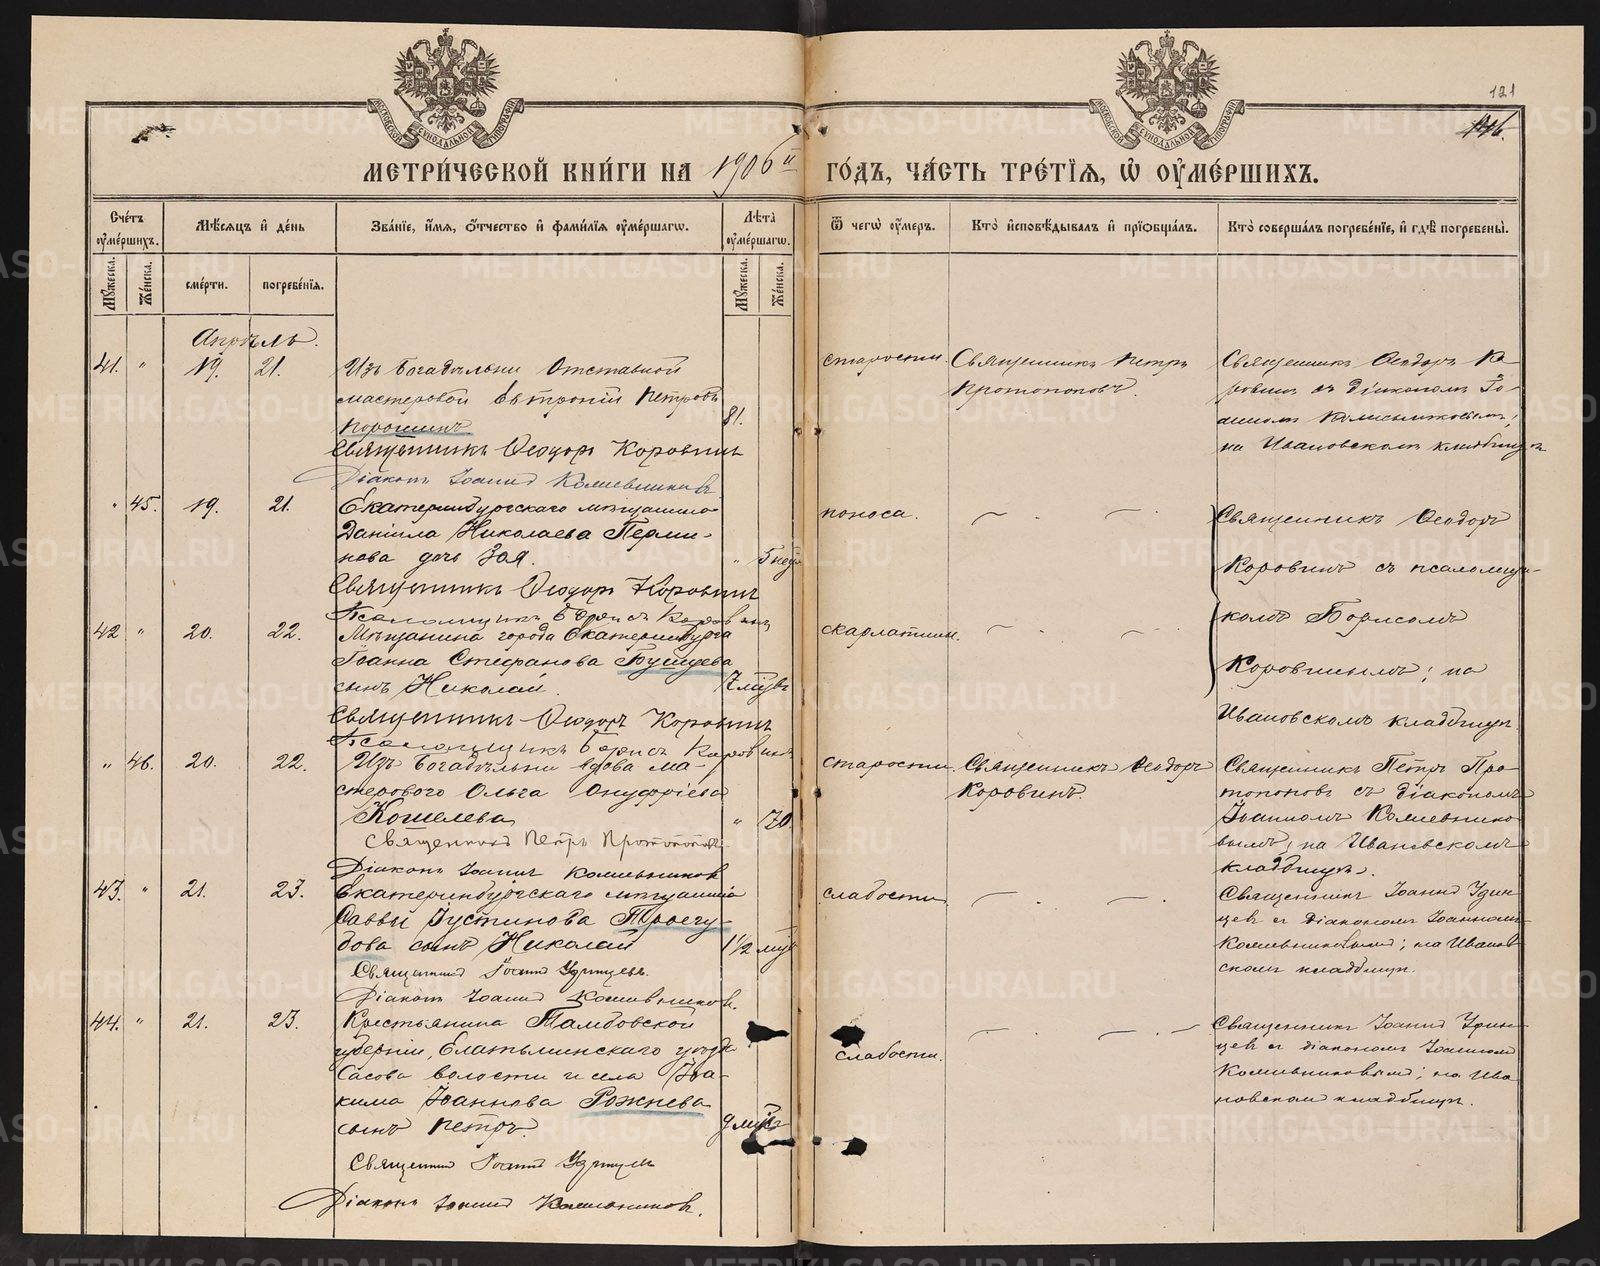 121
116.
МЕТРИ́ЧЕСКОЙ КНИ́ГИ НА 1906й ГО́ДЪ, ЧА́СТЬ ТРЕ́ТІЯ, Ѽ ОУ҆МЕ́РШИХЪ.
Сче́тъ оумершихъ.
Мужеска.
Же́нска.
Мѣсяцъ и день
сме́рти.
погребе́нія.
Зва́ніе, и҆́мя, ѻ҆́тчество и҆ фами́лія оу҆ме́ршагѡ.
Лѣта̀ оу҆ме́ршагѡ.
Мужеска.
Же́нска.
Ѿ чегѡ̀ оу҆́меръ.
Кто̀ и҆сповѣ́дывалъ и҆ прїѡбща́лъ.
Кто̀ соверша́лъ погребе́ніе, и҆ гдѣ̀ погребены̀.
Апрѣль.
41. " 19. 21.
Изъ Богадѣльни Отставной
мастеровой Петровъ
Порошинъ 81.
Священникъ Ѳеодоръ Коровинъ
Діаконъ Іоаннъ Колмевниковъ
старости.
Священникъ Петръ
Протопоповъ.
Священникъ Ѳеодоръ Ко-
ровинъ съ діакономъ Іо-
анномъ
на Ивановскомъ кладбищѣ
" 45. 19. 21.
Екатеринбургскаго мѣщанина
Даніила Николаева Перми-
нова дочь Зоя. " 5 нед.
Священникъ Ѳеодоръ Коровинъ
Псаломщикъ Борисъ Коровинъ
поноса.
Священникъ Ѳеодоръ
Коровинъ съ псаломщи-
комъ Борисомъ
Коровинымъ; на
Ивановскомъ кладбищѣ.
42 " 20. 22.
Мѣщанина города Екатеринбурга
Іоанна Стефанова Бушуева
сынъ Николай. 7 мѣс.
Священникъ Ѳеодоръ Коровинъ
Псаломщикъ Борисъ Коровинъ
скарлатины.
" 46. 20. 22.
Изъ Богадѣльни вдова ма-
стероваго Ольга Онуфріева
Кошелева " 70.
Священникъ Петръ Протопоповъ
Діаконъ Іоаннъ
старости.
Священникъ Ѳеодоръ
Коровинъ.
Священникъ Петръ Про-
топоповъ съ діакономъ
Іоанномъ
вымъ; на Ивановскомъ
кладбищѣ.
43. " 21. 23.
Екатеринбургскаго мѣщанина
Саввы Іустинова Троегу-
бова сынъ Николай 1½ мѣс
Священникъ Іоаннъ Удинцевъ.
Діаконъ Іоаннъ
слабости
Священникъ Іоаннъ Удин-
цевъ съ діакономъ Іоанномъ
на Иванов-
скомъ кладбищѣ.
44. " 21. 23.
Крестьянина Тамбовской
губерніи, Елатьминскаго уѣзда
Сасова волости и села Іоа-
кима Іоаннова Рожнева
сынъ Петръ. 9 мѣс
Священникъ Іоаннъ Удинцевъ
Діаконъ Іоаннъ
слабости.
Священникъ Іоаннъ Удин-
цевъ съ діакономъ Іоанномъ
на Ива-
новскомъ кладбищѣ.
METRIKI.GASO-URAL.RU